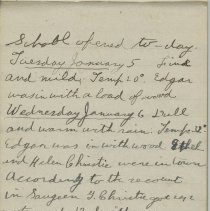 School opened to-day.
Tuesday January 5 Fine
and mild, Temp 20° Edgar
was in with a load of wood
Wednesday January 6 Dull
and warm with rain. Temp
Edgar was in with wood Ethel
and Helen Christie were in town
According to the recount
in Saugeen J. Christie got